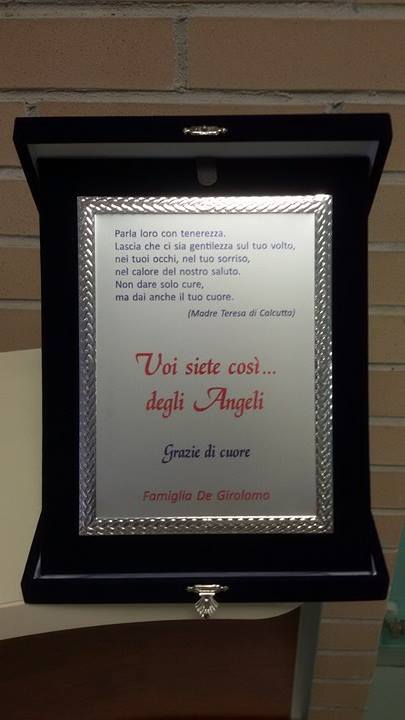 Parla loro con tenerezza.
Lascia che ci sia gentilezza sul tuo volto,
nei tuoi occhi, nel tuo sorriso,
nel calore del nostro saluto.
Non dare solo cure,
ma dai anche il tuo cuore.
(Madre Teresa di Calcutta)
Voi siete così...
degli Angeli
Grazie di cuore
Famiglia De Girolamo